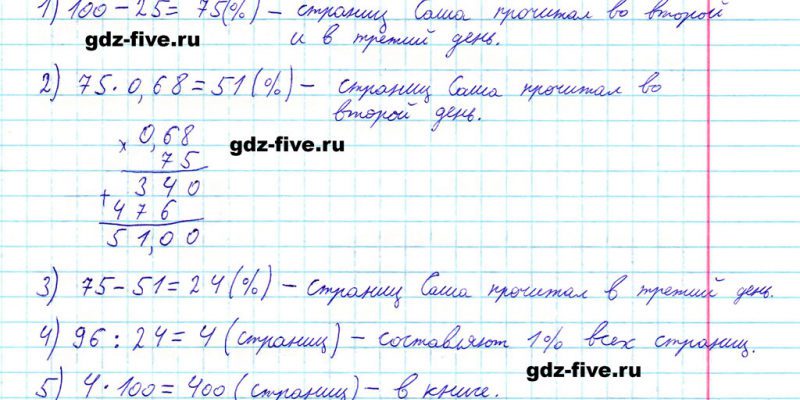 1) 100 − 25 = 75(%) − страниц Саша прочитал во второй
и в третий день.
gdz-five.ru
2) 75 · 0,68 = 51(%) − страниц Саша прочитал во
второй день.
× 0,68
75
gdz-five.ru
+ 340
476
51,00
3) 75 − 51 = 24(%) − страниц Саша прочитал в третий день.
4) 96 : 24 = 4 (страниц) − составляют 1% всех страниц.
gdz-five.ru
5) 4 · 100 = 400 (страниц) − в книге.